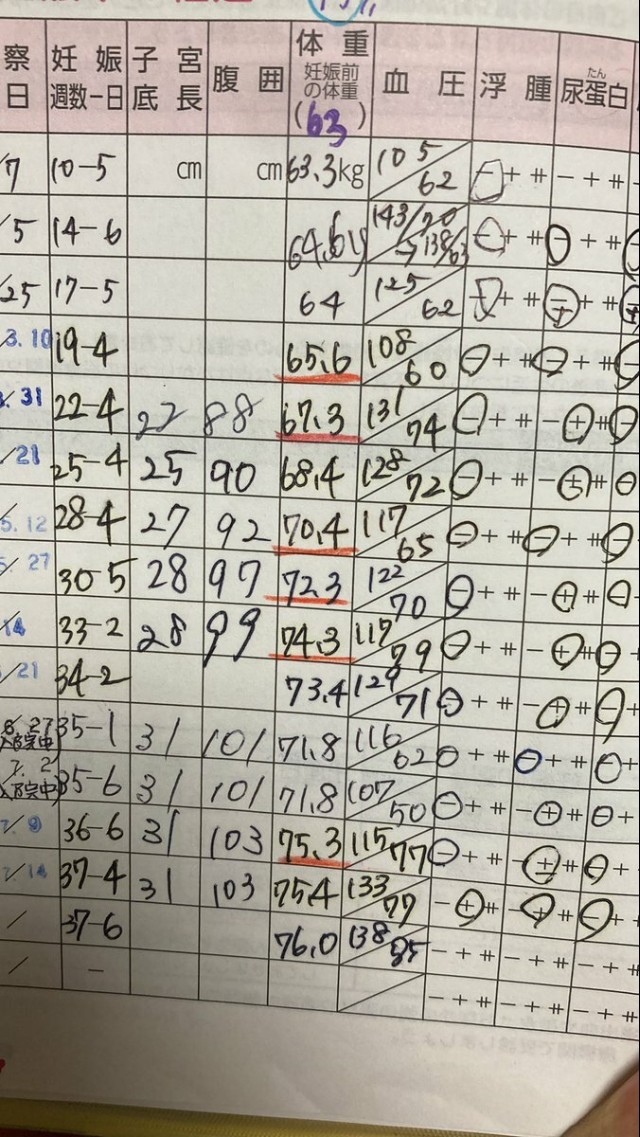 察日 妊娠週数－日 子宮底長 腹囲 体重 妊娠前の体重 (63) 血圧 浮腫 尿蛋白 たん
/7 10-5 cm cm 63.3kg 105/62 - + ⧺ - + ⧺
/5 14-6 64.6 143/70 → 138/63 - + ⧺ - + ⧺
/25 17-5 64 125/62 - + ⧺ ± + ⧺
3.10 19-4 65.6 108/60 - + ⧺ - + ⧺
31 22-4 27 88 67.3 131/74 - + ⧺ - + ⧺
/21 25-4 25 90 68.4 128/72 - + ⧺ - ± ⧺
5.12 28-4 27 92 70.4 117/65 - + ⧺ - + ⧺
27 30-5 28 97 72.3 122/70 - + ⧺ - + ⧺
14 33-2 28 99 74.3 117/79 - + ⧺ - + ⧺
/21 34-2 73.4 129/71 - + ⧺ - + ⧺
27 35-1 31 101 71.8 116/62 - + ⧺ - + ⧺
7.2 35-6 31 101 71.8 107/50 - + ⧺ - + ⧺
7/9 36-6 31 103 75.3 115/77 - + ⧺ - ± ⧺
7/14 37-4 31 103 75.4 133/79 - + ⧺ - + ⧺
/ 37-6 76.0 138/85 - + ⧺ - + ⧺ - + ⧺
/ - - + ⧺ - + ⧺ - + ⧺